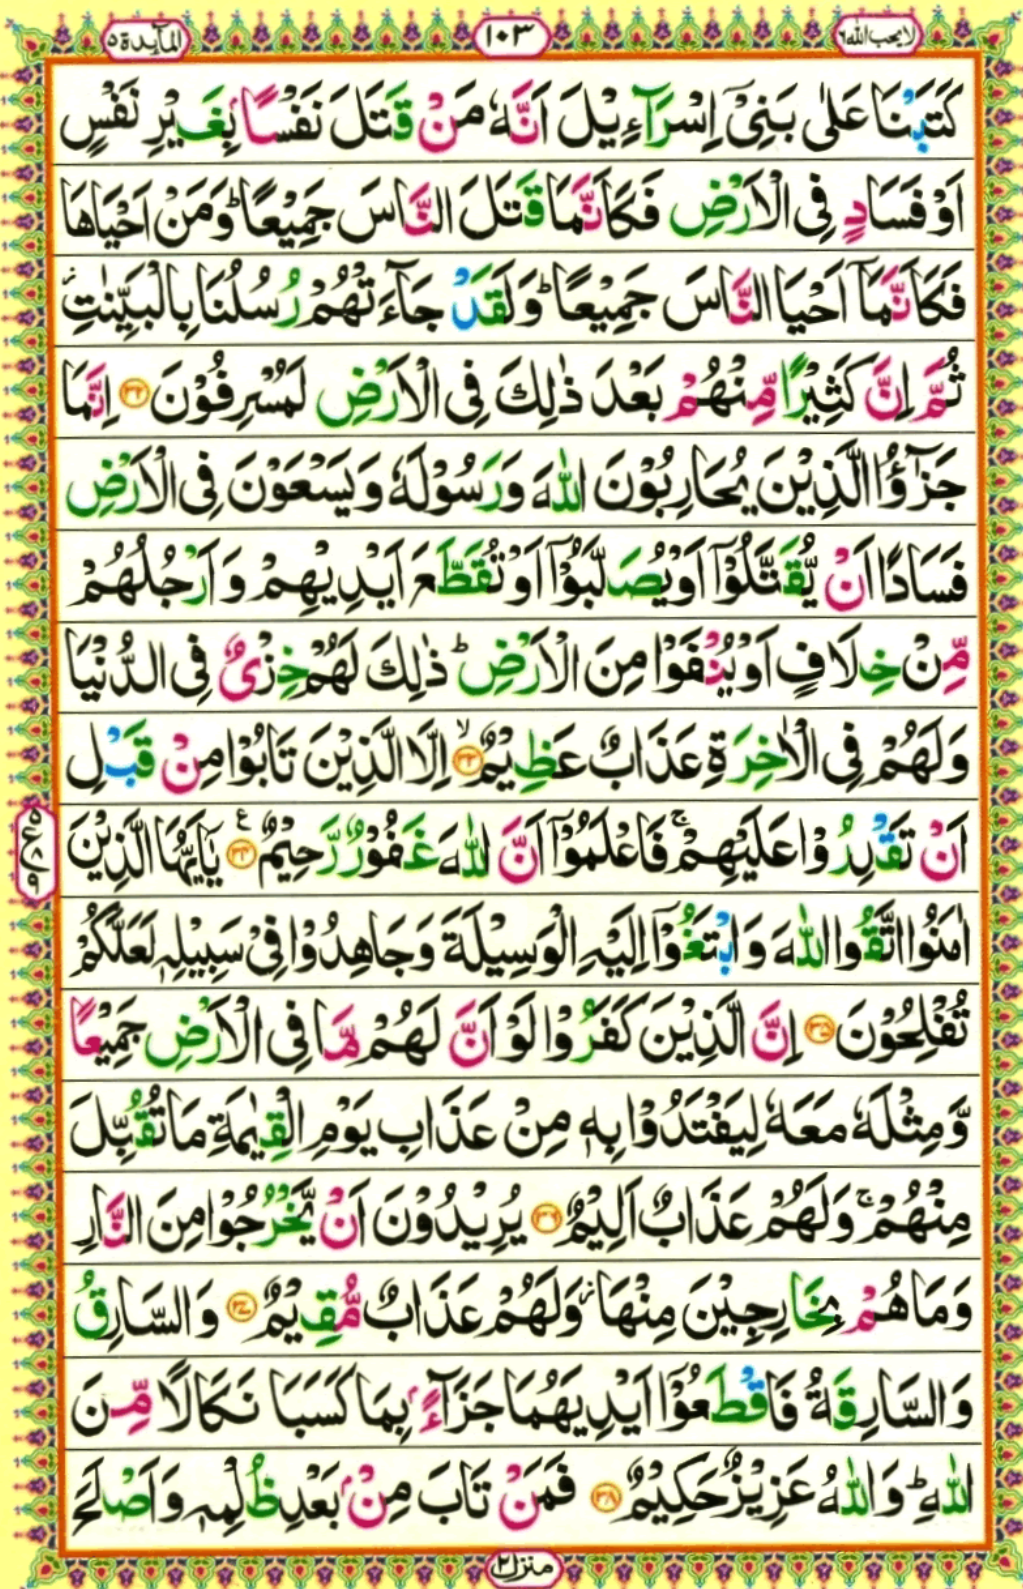 لا يحب الله ٦
١٠٣
المآىِٕدة ٥
كَتَبْنَا عَلٰى بَنِىْۤ اِسْرَآءِيْلَ اَنَّهٗ مَنْ قَتَلَ نَفْسًۢا بِغَيْرِ نَفْسٍ
اَوْ فَسَادٍ فِى الْاَرْضِ فَكَاَنَّمَا قَتَلَ النَّاسَ جَمِيْعًا ؕ وَمَنْ اَحْيَاهَا
فَكَاَنَّمَاۤ اَحْيَا النَّاسَ جَمِيْعًا ؕ وَلَقَدْ جَآءَتْهُمْ رُسُلُنَا بِالْبَيِّنٰتِ ؗ
ثُمَّ اِنَّ كَثِيْرًا مِّنْهُمْ بَعْدَ ذٰلِكَ فِى الْاَرْضِ لَمُسْرِفُوْنَ ۝۳۲ اِنَّمَا
جَزٰٓؤُا الَّذِيْنَ يُحَارِبُوْنَ اللّٰهَ وَرَسُوْلَهٗ وَيَسْعَوْنَ فِى الْاَرْضِ
فَسَادًا اَنْ يُّقَتَّلُوْۤا اَوْ يُصَلَّبُوْۤا اَوْ تُقَطَّعَ اَيْدِيْهِمْ وَاَرْجُلُهُمْ
مِّنْ خِلَافٍ اَوْ يُنْفَوْا مِنَ الْاَرْضِ ؕ ذٰلِكَ لَهُمْ خِزْىٌ فِى الدُّنْيَا
وَلَهُمْ فِى الْاٰخِرَةِ عَذَابٌ عَظِيْمٌ ۝۳۳ۙ اِلَّا الَّذِيْنَ تَابُوْا مِنْ قَبْلِ
اَنْ تَقْدِرُوْا عَلَيْهِمْ ۚ فَاعْلَمُوْۤا اَنَّ اللّٰهَ غَفُوْرٌ رَّحِيْمٌ ۝۳۴ ع يٰۤاَيُّهَا الَّذِيْنَ
اٰمَنُوا اتَّقُوا اللّٰهَ وَابْتَغُوْۤا اِلَيْهِ الْوَسِيْلَةَ وَجَاهِدُوْا فِىْ سَبِيْلِهٖ لَعَلَّكُمْ
تُفْلِحُوْنَ ۝۳۵ اِنَّ الَّذِيْنَ كَفَرُوْا لَوْ اَنَّ لَهُمْ مَّا فِى الْاَرْضِ جَمِيْعًا
وَّمِثْلَهٗ مَعَهٗ لِيَفْتَدُوْا بِهٖ مِنْ عَذَابِ يَوْمِ الْقِيٰمَةِ مَا تُقُبِّلَ
مِنْهُمْ ۚ وَلَهُمْ عَذَابٌ اَلِيْمٌ ۝۳۶ يُرِيْدُوْنَ اَنْ يَّخْرُجُوْا مِنَ النَّارِ
وَمَا هُمْ بِخَارِجِيْنَ مِنْهَا ؗ وَلَهُمْ عَذَابٌ مُّقِيْمٌ ۝۳۷ وَالسَّارِقُ
وَالسَّارِقَةُ فَاقْطَعُوْۤا اَيْدِيَهُمَا جَزَآءًۢ بِمَا كَسَبَا نَكَالًا مِّنَ
اللّٰهِ ؕ وَاللّٰهُ عَزِيْزٌ حَكِيْمٌ ۝۳۸ فَمَنْ تَابَ مِنْۢ بَعْدِ ظُلْمِهٖ وَاَصْلَحَ
منزل ۲